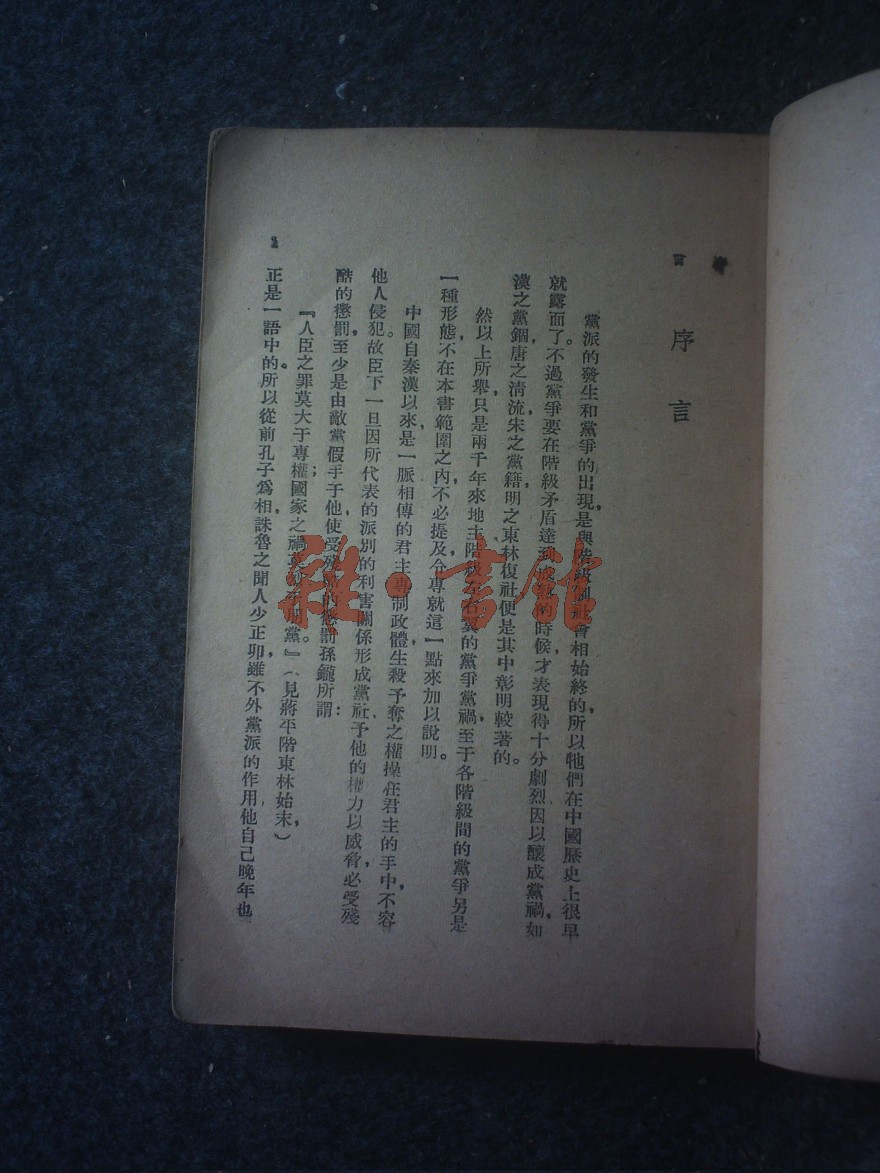 序言
序言
黨派的發生和黨爭的出現，是與階級制社會相始終的，所以牠們在中國歷史上很早
就露面了。不過黨爭要在階級矛盾達到的時候，才表現得十分劇烈，因以釀成黨禍，如
漢之黨錮，唐之清流，宋之黨籍，明之東林復社，便是其中彰明較著的。
然以上所舉，只是兩千年來地主階級左右翼的黨爭黨禍，至于各階級間的黨爭，另是
一種形態，不在本書範圍之內，不必提及，今專就這一點來加以說明。
中國自秦漢以來，是一脈相傳的君主專制政體，生殺予奪之權，操在君主的手中，不容
他人侵犯。故臣下一旦因所代表的派別的利害關係，形成黨社，予他的權力以威脅，必受殘
酷的懲罰，至少是由敵黨假手于他，使受殘酷的懲罰。孫鑨所謂：
『人臣之罪，莫大于專權；國家之禍，莫烈于朋黨。』（見蔣平階東林始末，）
正是一語中的。所以從前孔子爲相，誅魯之聞人少正卯，雖不外黨派的作用，他自己晚年也
1
雜·書館